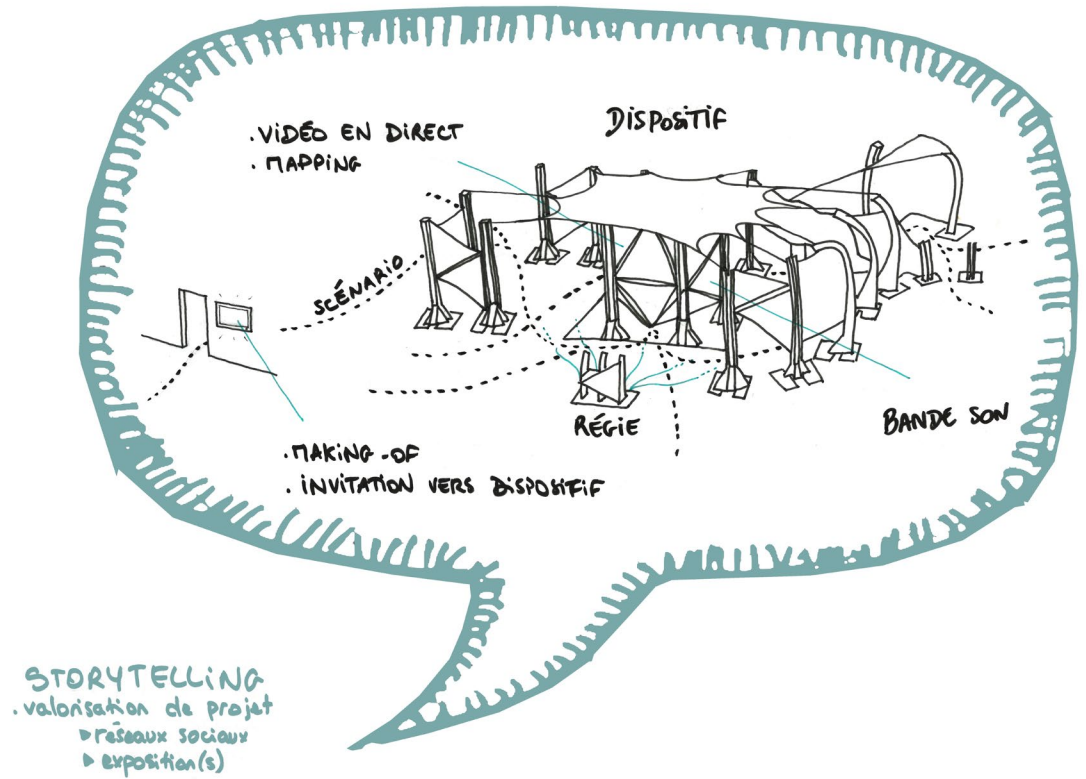 DISPOSITIF
. VIDÉO EN DIRECT
. MAPPING
SCÉNARIO
RÉGIE
BANDE SON
. MAKING-OF
. INVITATION VERS DISPOSITIF
STORYTELLING
. valorisation de projet
▸ réseaux sociaux
▸ exposition(s)